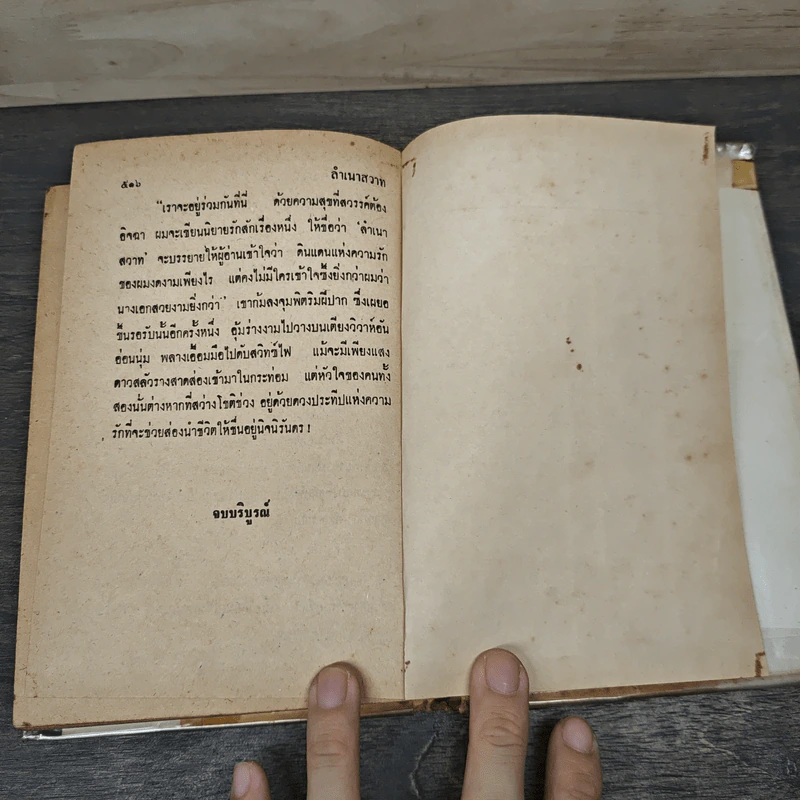 ๕๑๖ ลำเนาสวาท
"เราจะอยู่ร่วมกันที่นี่ ด้วยความสุขที่สวรรค์ต้อง
อิจฉา ผมจะเขียนนิยายรักสักเรื่องหนึ่ง ให้ชื่อว่า 'ลำเนา
สวาท' จะบรรยายให้ผู้อ่านเข้าใจว่า ดินแดนแห่งความรัก
ของผมงดงามเพียงไร แต่คงไม่มีใครเข้าใจซึ้งยิ่งกว่าผมว่า
นางเอกสวยงามยิ่งกว่า" เขาก้มลงจุมพิตริมฝีปาก ซึ่งเผยอ
ขึ้นรอรับนั้นอีกครั้งหนึ่ง อุ้มร่างงามไปวางบนเตียงวิวาห์อัน
อ่อนนุ่ม พลางเอื้อมมือไปดับสวิทช์ไฟ แม้จะมีเพียงแสง
ดาวสลัวรางสาดส่องเข้ามาในกระท่อม แต่หัวใจของคนทั้ง
สองนั้นต่างหากที่สว่างโชติช่วง อยู่ด้วยดวงประทีปแห่งความ
รักที่จะช่วยส่องนำชีวิตให้ชื่นอยู่นิจนิรันดร !
จบบริบูรณ์